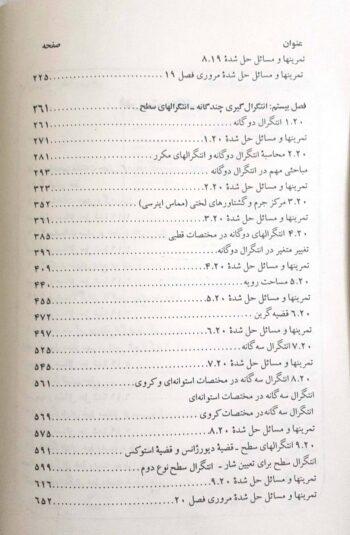 عنوان صفحه
تمرینها و مسائل حل شدهٔ ۸.۱۹
تمرینها و مسائل حل شدهٔ مروری فصل ۱۹ ........ ۲۲۵
فصل بیستم: انتگرال‌گیری چندگانه ـ انتگرالهای سطح ........ ۲۶۱
۱.۲۰ انتگرال دوگانه ........ ۲۶۱
تمرینها و مسائل حل شدهٔ ۱.۲۰ ........ ۲۷۱
۲.۲۰ محاسبهٔ انتگرال دوگانه و انتگرالهای مکرر ........ ۲۸۱
مباحثی مهم در انتگرال دوگانه ........ ۲۹۳
تمرینها و مسائل حل شدهٔ ۲.۲۰ ........ ۳۲۳
۳.۲۰ مرکز جرم و گشتاورهای لختی (مماس اینرسی) ........ ۳۵۲
تمرینها و مسائل حل شدهٔ ۳.۲۰ ........ ۳۶۱
۴.۲۰ انتگرالهای دوگانه در مختصات قطبی ........ ۳۸۵
تغییر متغیر در انتگرال دوگانه ........ ۳۹۶
تمرینها و مسائل حل شدهٔ ۴.۲۰ ........ ۴۰۹
۵.۲۰ مساحت رویه ........ ۴۴۰
تمرینها و مسائل حل شدهٔ ۵.۲۰ ........ ۴۵۵
۶.۲۰ قضیهٔ گرین ........ ۴۷۲
تمرینها و مسائل حل شدهٔ ۶.۲۰ ........ ۴۹۷
۷.۲۰ انتگرال سه‌گانه ........ ۵۲۵
تمرینها و مسائل حل شدهٔ ۷.۲۰ ........ ۵۴۵
۸.۲۰ انتگرال سه‌گانه در مختصات استوانه‌ای و کروی ........ ۵۶۱
انتگرال سه‌گانه در مختصات استوانه‌ای
انتگرال سه‌گانه در مختصات کروی ........ ۵۶۹
تمرینها و مسائل حل شدهٔ ۸.۲۰ ........ ۵۷۵
۹.۲۰ انتگرالهای سطح ـ قضیهٔ دیورژانس و قضیهٔ استوکس ........ ۵۹۱
انتگرال سطح برای تعیین شار ـ انتگرال سطح نوع دوم ........ ۵۹۹
تمرینها و مسائل حل شدهٔ ۹.۲۰ ........ ۶۱۶
تمرینها و مسائل حل شدهٔ مروری فصل ۲۰ ........ ۶۵۲